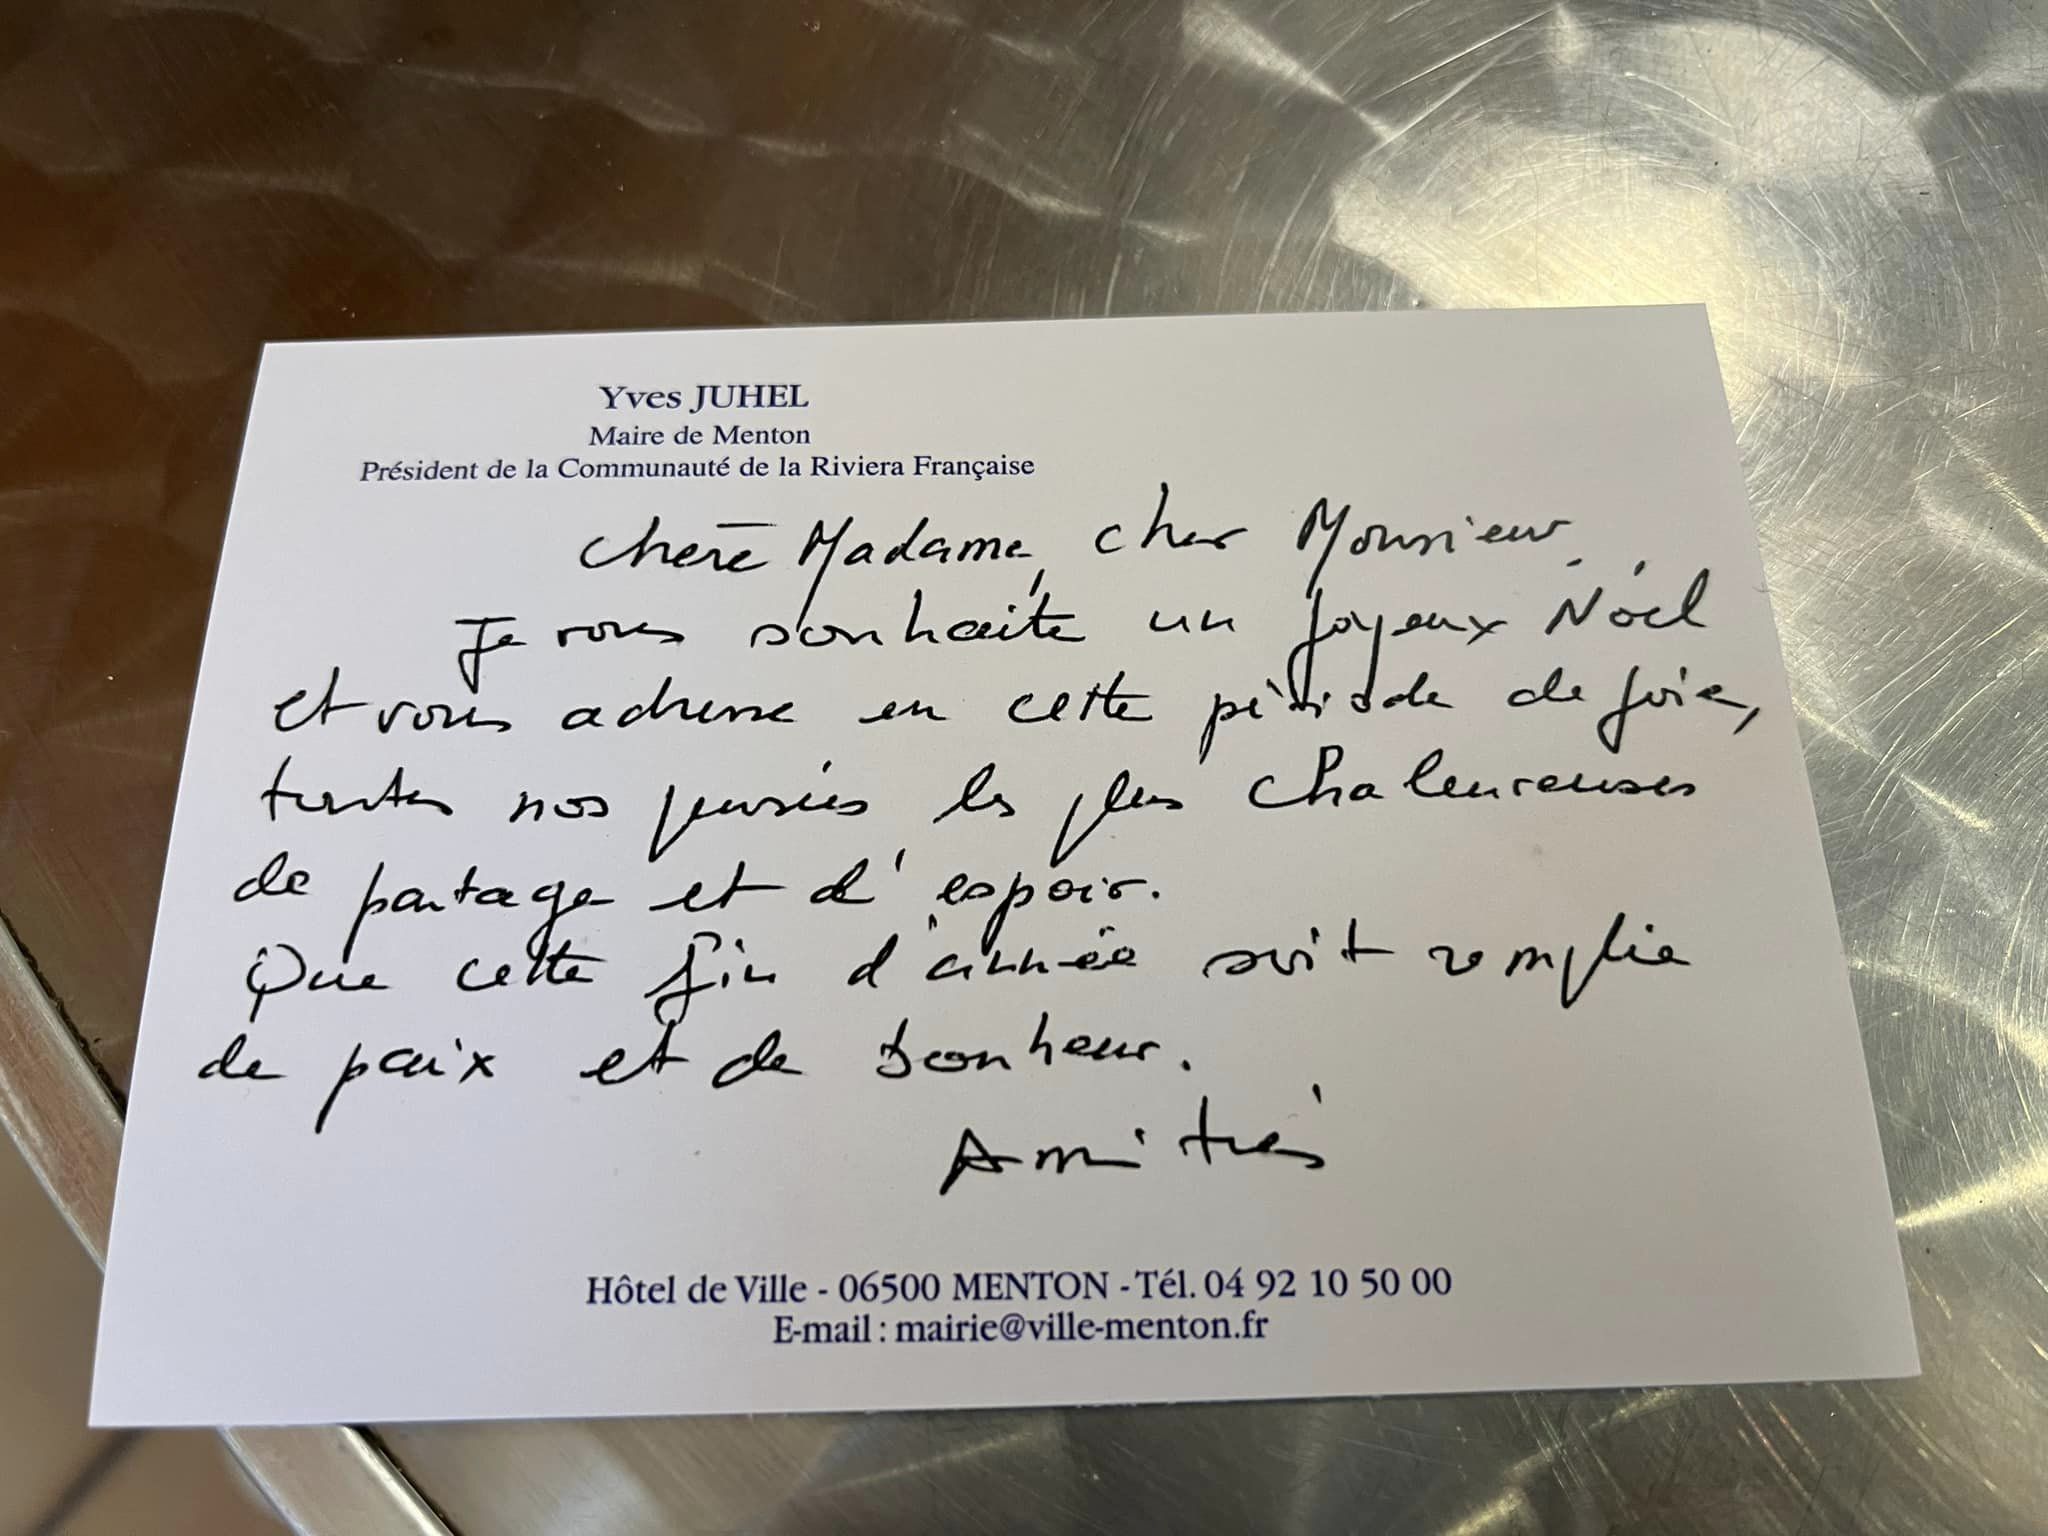 Yves JUHEL
Maire de Menton
Président de la Communauté de la Riviera Française
Chère Madame, cher Monsieur,
Je vous souhaite un joyeux Noël
et vous adresse en cette période de joie,
toutes nos pensées les plus chaleureuses
de partage et d'espoir.
Que cette fin d'année soit remplie
de paix et de bonheur.
Amitiés
Hôtel de Ville - 06500 MENTON - Tél. 04 92 10 50 00
E-mail : mairie@ville-menton.fr